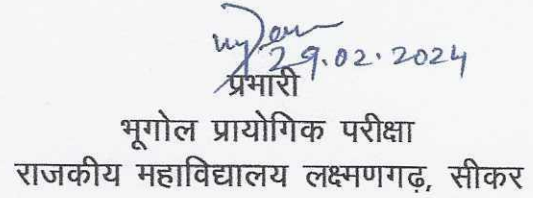 29.02.2024
प्रभारी
भूगोल प्रायोगिक परीक्षा
राजकीय महाविद्यालय लक्ष्मणगढ़, सीकर